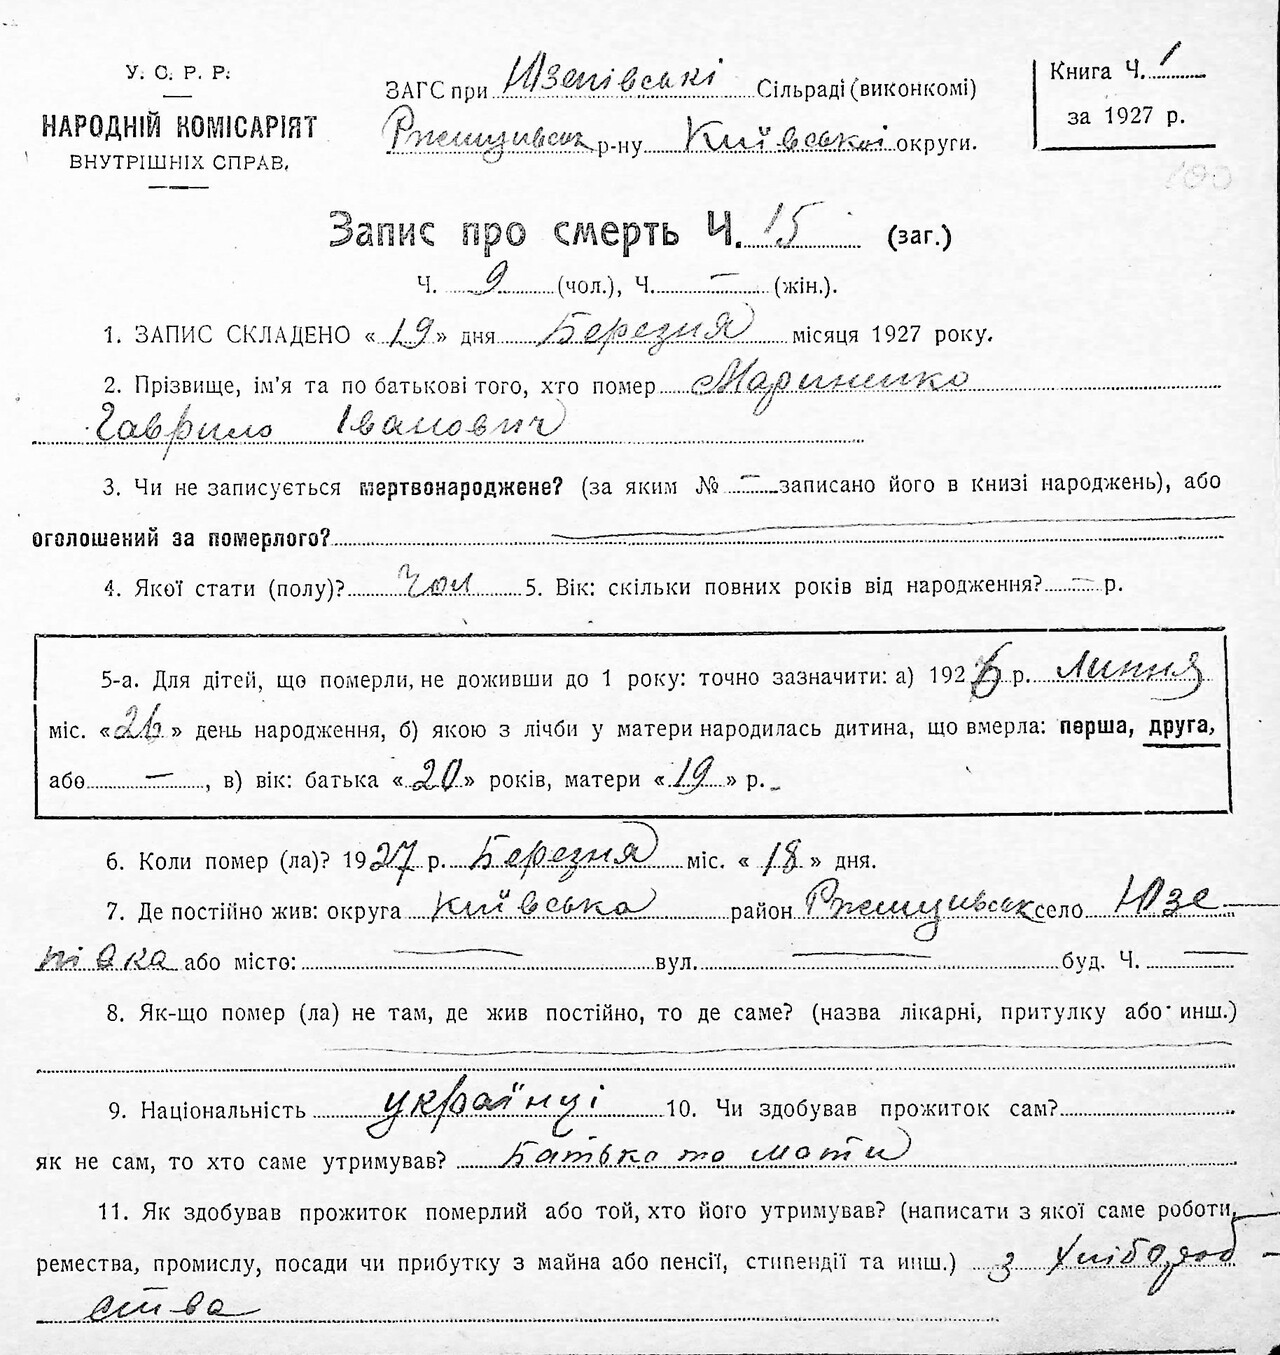 У. С. Р. Р.
НАРОДНІЙ КОМІСАРІЯТ
ВНУТРІШНІХ СПРАВ.
ЗАГС при Юзепівські Сільраді (виконкомі)
Ржищівськ р-ну Київської округи.
Книга Ч. 1
за 1927 р.
100
Запис про смерть Ч. 15 (заг.)
Ч. 9 (чол.), Ч. — (жін.).
1. ЗАПИС СКЛАДЕНО « 19 » дня Березня місяця 1927 року.
2. Прізвище, ім'я та по батькові того, хто помер Мариненко
Гаврило Іванович
3. Чи не записується мертвонароджене? (за яким № — записано його в книзі народжень), або
оголошений за померлого? —
4. Якої стати (полу)? чол 5. Вік: скільки повних років від народження? — р.
5-а. Для дітей, що померли, не доживши до 1 року: точно зазначити: а) 1926 р. Липня
міс. « 26 » день народження, б) якою з лічби у матери народилась дитина, що вмерла: перша, друга,
або — , в) вік: батька « 20 » років, матери « 19 » р.
6. Коли помер (ла)? 1927 р. Березня міс. « 18 » дня.
7. Де постійно жив: округа Київська район Ржищивськ село Юзе-
півка або місто: — вул. — буд. Ч. —
8. Як-що помер (ла) не там, де жив постійно, то де саме? (назва лікарні, притулку або инш.)
9. Національність українці 10. Чи здобував прожиток сам?
як не сам, то хто саме утримував? Батько та мати
11. Як здобував прожиток померлий або той, хто його утримував? (написати з якої саме роботи,
ремества, промислу, посади чи прибутку з майна або пенсії, стипендії та инш.) з Хлібороб-
ства